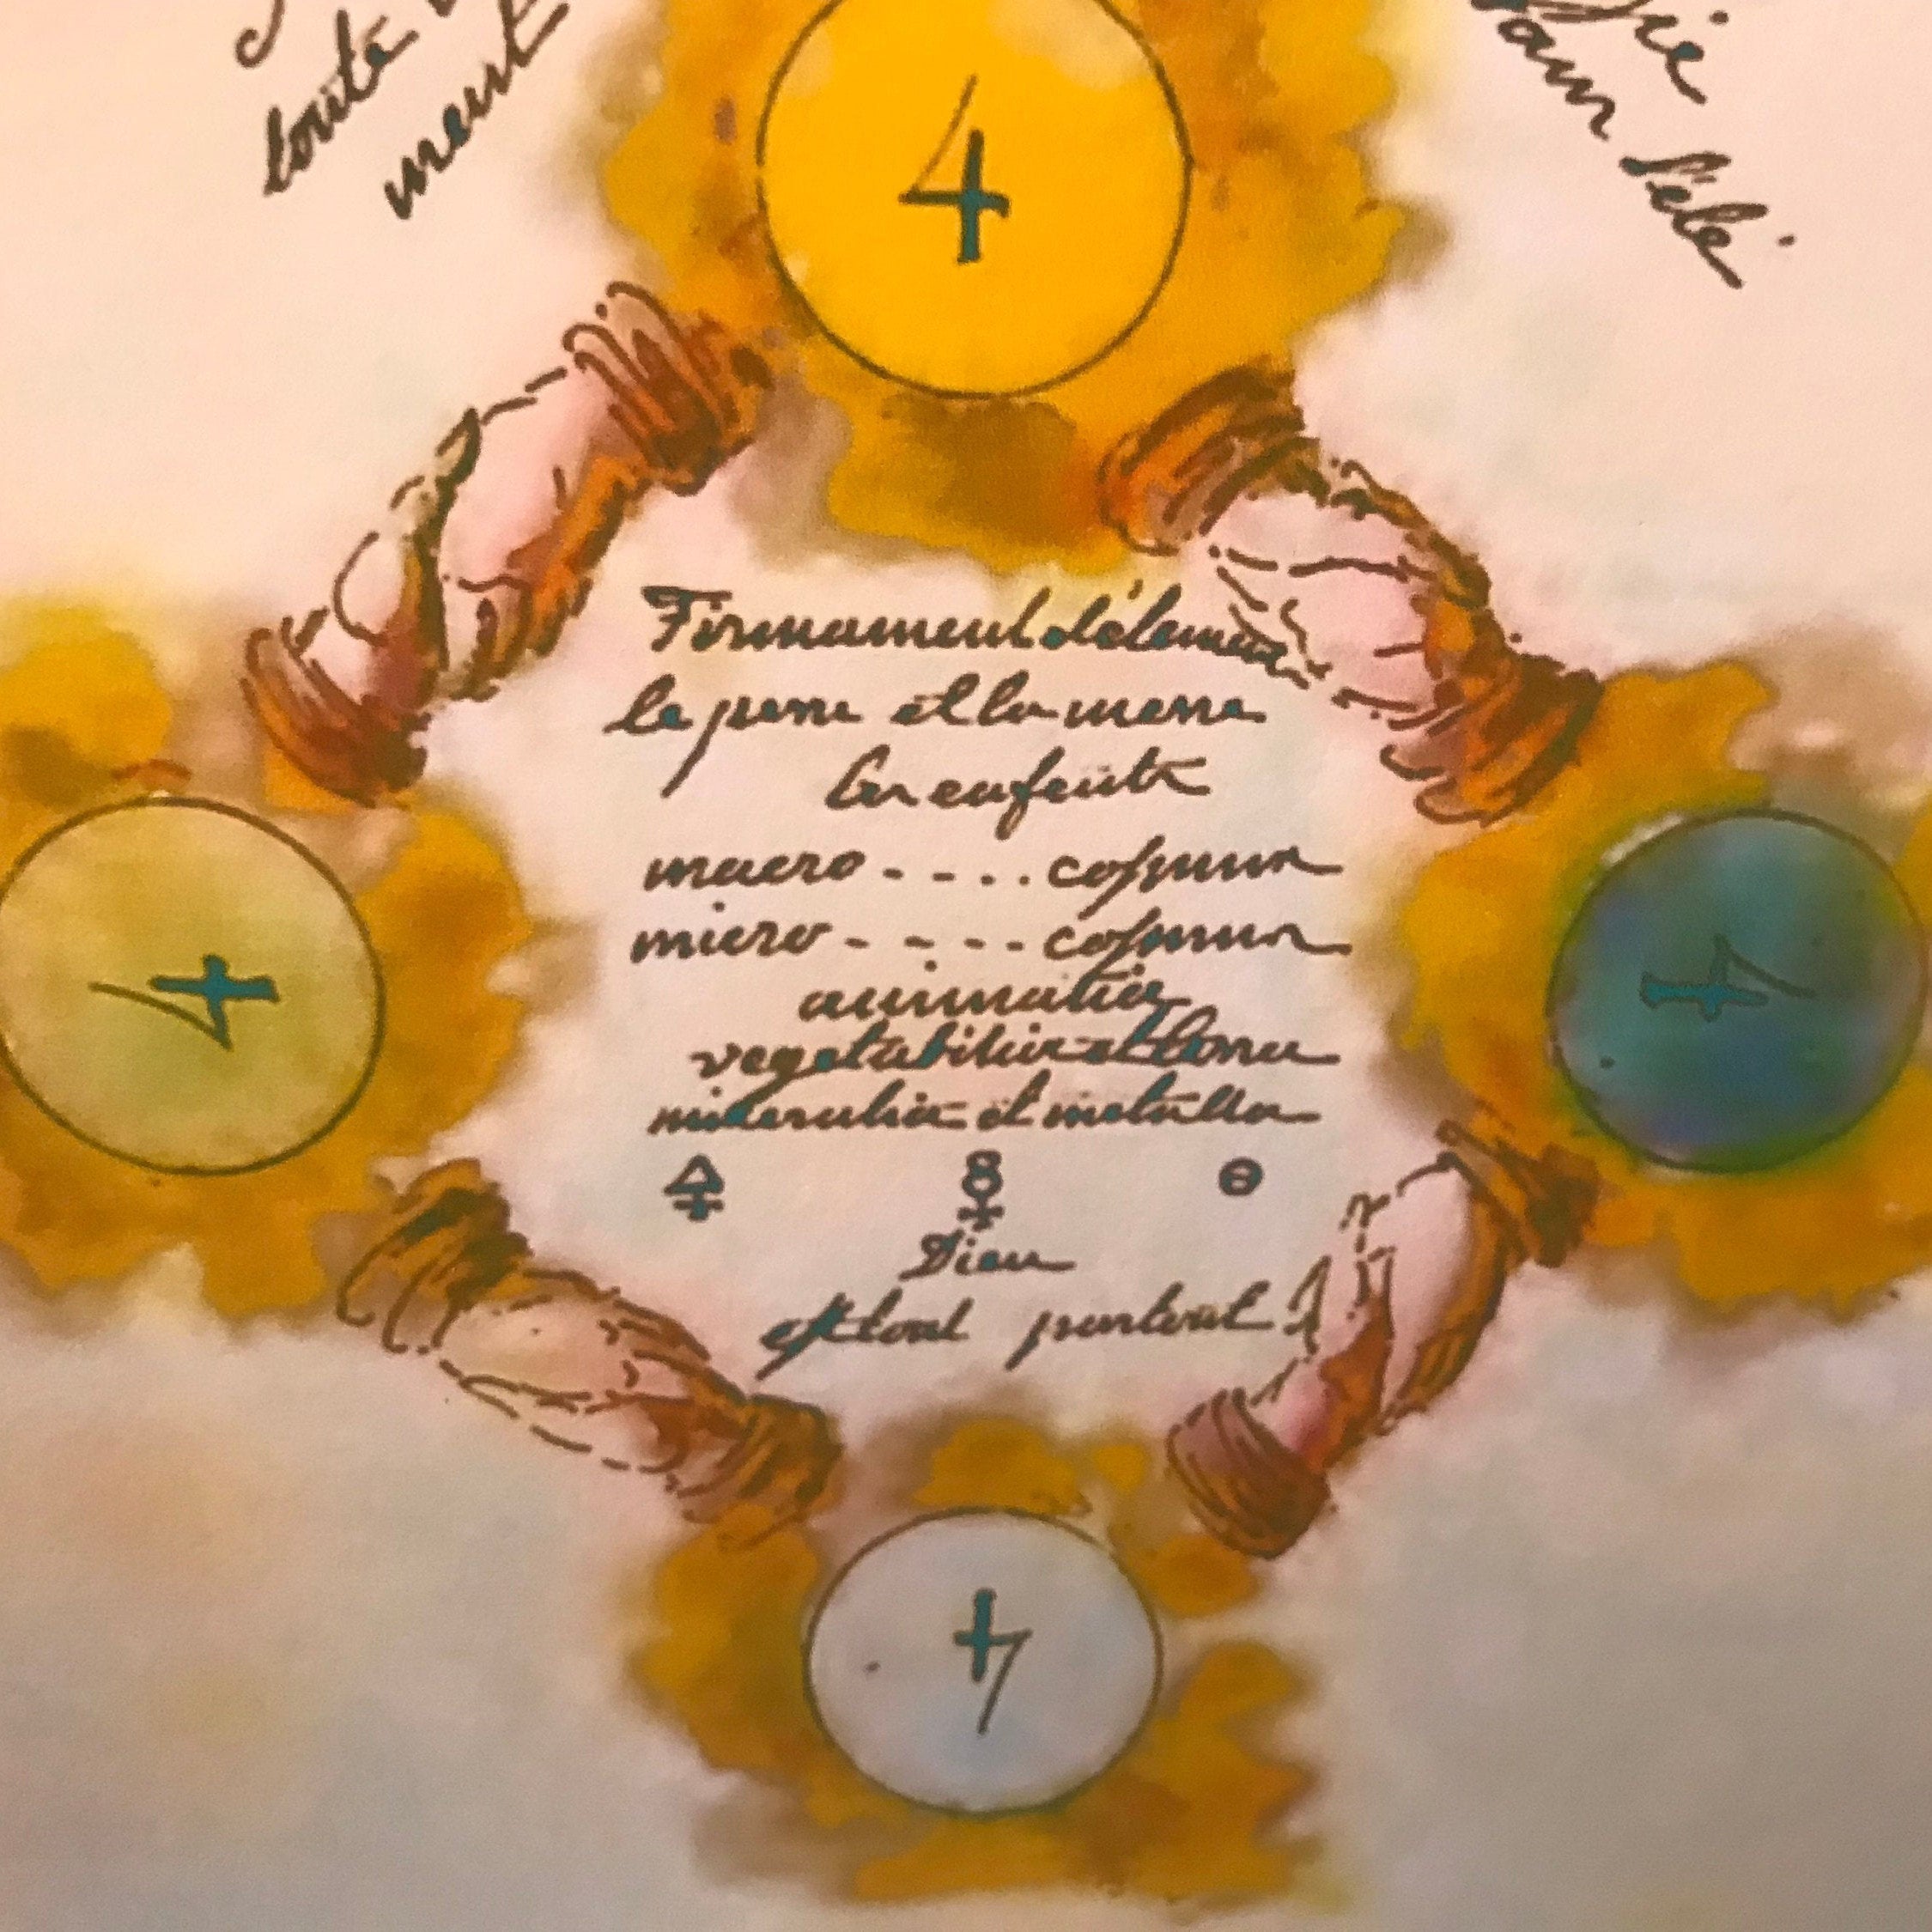 toute
meurt
4
Firmament d'élemens
le pere et la mere
les enfents
macro - - . . cosmus
micro - - - - cosmus
animatia
vegetabilia et
mineralia et metalla
🜍 ☿ 🜔
Dieu
est tout partout
4
4
4